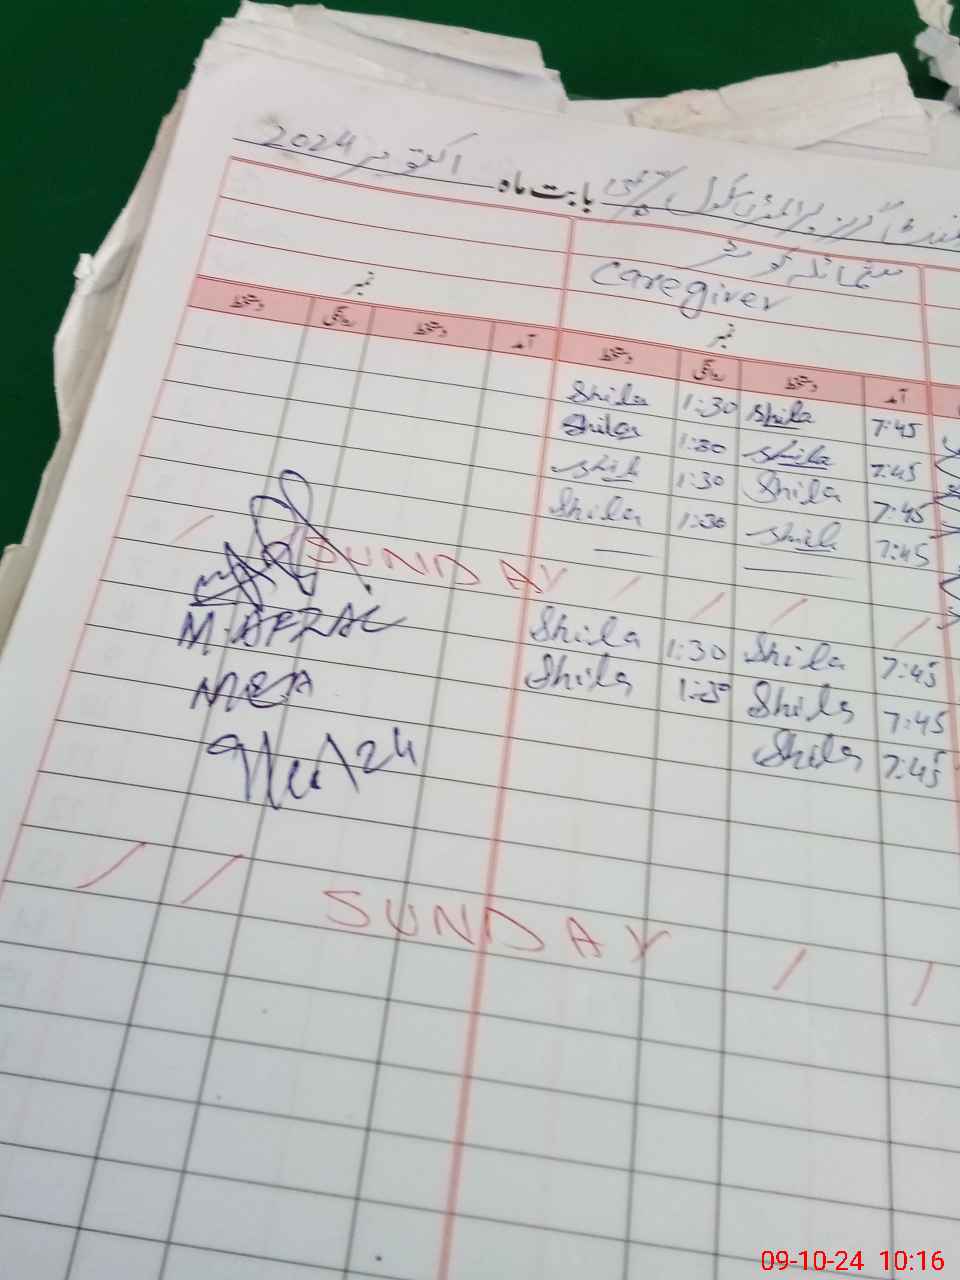 بابت ماہ اکتوبر 2024
Caregiver
نمبر نمبر
آمد دستخط روانگی دستخط آمد دستخط روانگی دستخط
Shila 1:30 Shila 7:45
Shila 1:30 Shila 7:45
Shil 1:30 Shila 7:45
Shila 1:30 Shila 7:45
SUNDAY
M. AFZAL Shila 1:30 Shila 7:45
MEA Shila 1:30 Shila 7:45
Shila 7:45
SUNDAY
09-10-24 10:16